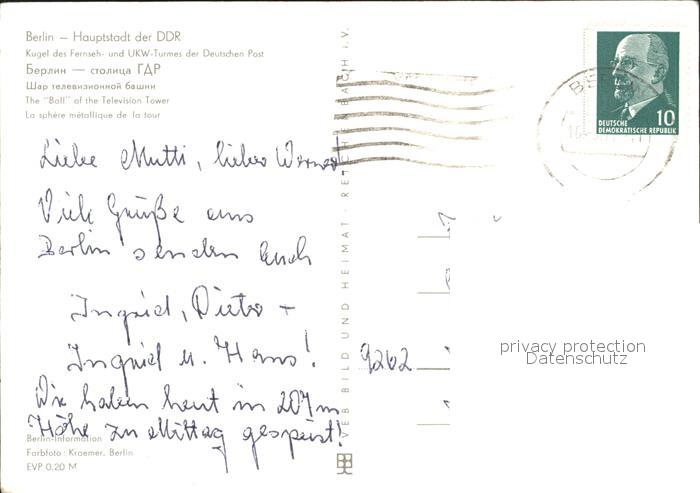 Berlin – Hauptstadt der DDR
Kugel des Fernseh- und UKW-Turmes der Deutschen Post
Берлин — столица ГДР
Шар телевизионной башни
The "Ball" of the Television Tower
La sphère métallique de la tour
Liebe Mutti, lieber Werner!
Viele Grüße aus
Berlin senden Euch
Ingrid, Dieter +
Ingrid u. Hans!
Wir haben heut in 207 m
Höhe zu Mittag gespeist!
Berlin-Information
Farbfoto: Kraemer, Berlin
EVP 0,20 M
VEB BILD UND HEIMAT · REICHENBACH i. V.
DEUTSCHE
DEMOKRATISCHE REPUBLIK
10
BE
9262
privacy protection
Datenschutz